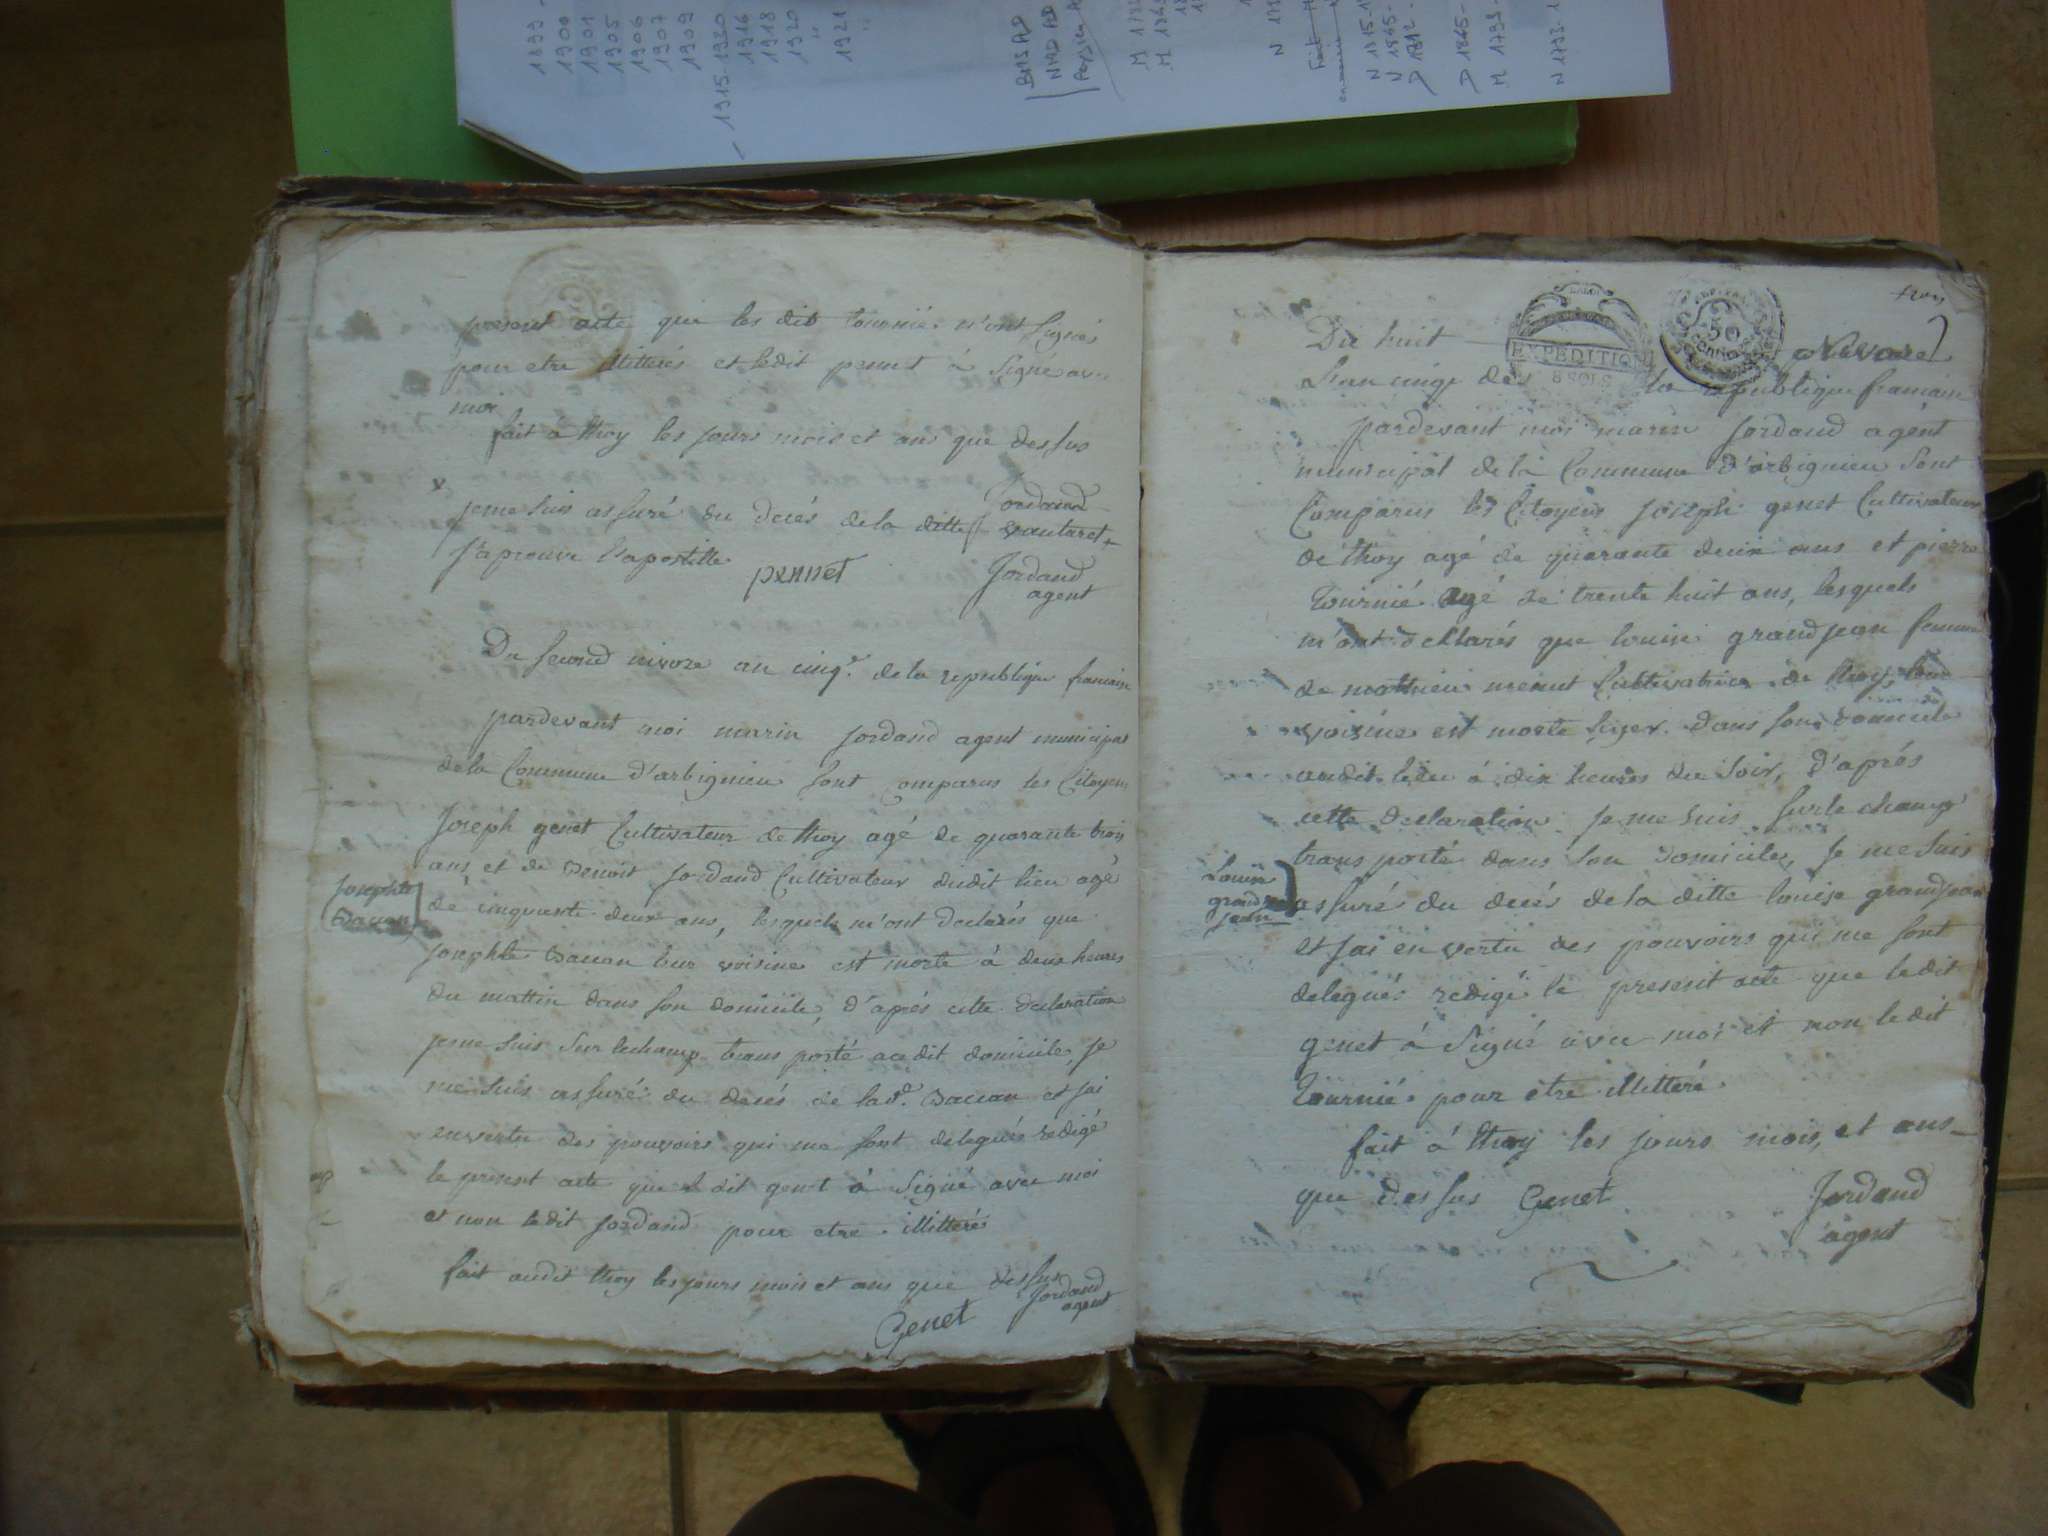 1899 -
1900
1901
1905
1906
1907
1909
- 1915-1920
1916
1918
1920
1921
BMS AD
NMD AD
M 1793
N 1793-1
present acte que les dits tournié n'ont signés
pour etre illitterés et ledit pennet à signé avec
moi
fait à thoy les jours mois et ans que dessus
x jeme suis assuré du decés de la ditte jordand
vautaret +
J'aprouve l'apostille
pennet
Jordand
agent
Du second nivoze an cinq.e de la republique francaise
pardevant moi marin jordand agent municipal
dela Commune d'arbignieu sont comparus les Citoyens
Joseph genet Cultivateur de thoy agé de quarante trois
ans, et de Benoit jordand Cultivateur dudit lieu agé
de cinquante deux ans, lesquels m'ont declarés que
josephte
josephte leur voisine est morte à deux heures
du mattin dans son domicile, d'aprés cette declaration
jeme suis sur lechamp trans porté acedit domicile, je
me suis assuré du decés de lad.e et jai
envertu des pouvoirs qui me sont delegués redigé
le present acte que l dit genet à signé avec moi
et non ledit jordand pour etre illitteré
fait audit thoy les jours mois et ans que dessus
Jordand
agent
Genet
trois
Du huit Nivoze
L'an cinq des la republique francaise
LA LOI
EXPEDITION
8 SOLS
50
centimes
pardevant moi marin jordand agent
municipal dela Commune d'arbignieu sont
Comparus les Citoyens joseph genet Cultivateur
de thoy agé de quarante deux ans et pierre
tournié agé de trente huit ans, lesquels
m'ont decllarés que louise grandjean femme
de mathieu Cultivatrice de thoy, leur
voisine est morte hyer dans son domicile
audit lieu à dix heures du soir, d'aprés
cette declaration je me suis sur le champ
trans porté dans son domicile, je me suis
Louise
grand
jean
assuré du decés de la ditte louise grandjean
et jai en vertu des pouvoirs qui me sont
delegués redigé le present acte que ledit
genet à signé avec moi et non ledit
tournié pour etre illitteré
fait à thoy les jours mois, et ans
que dessus Genet
Jordand
agent